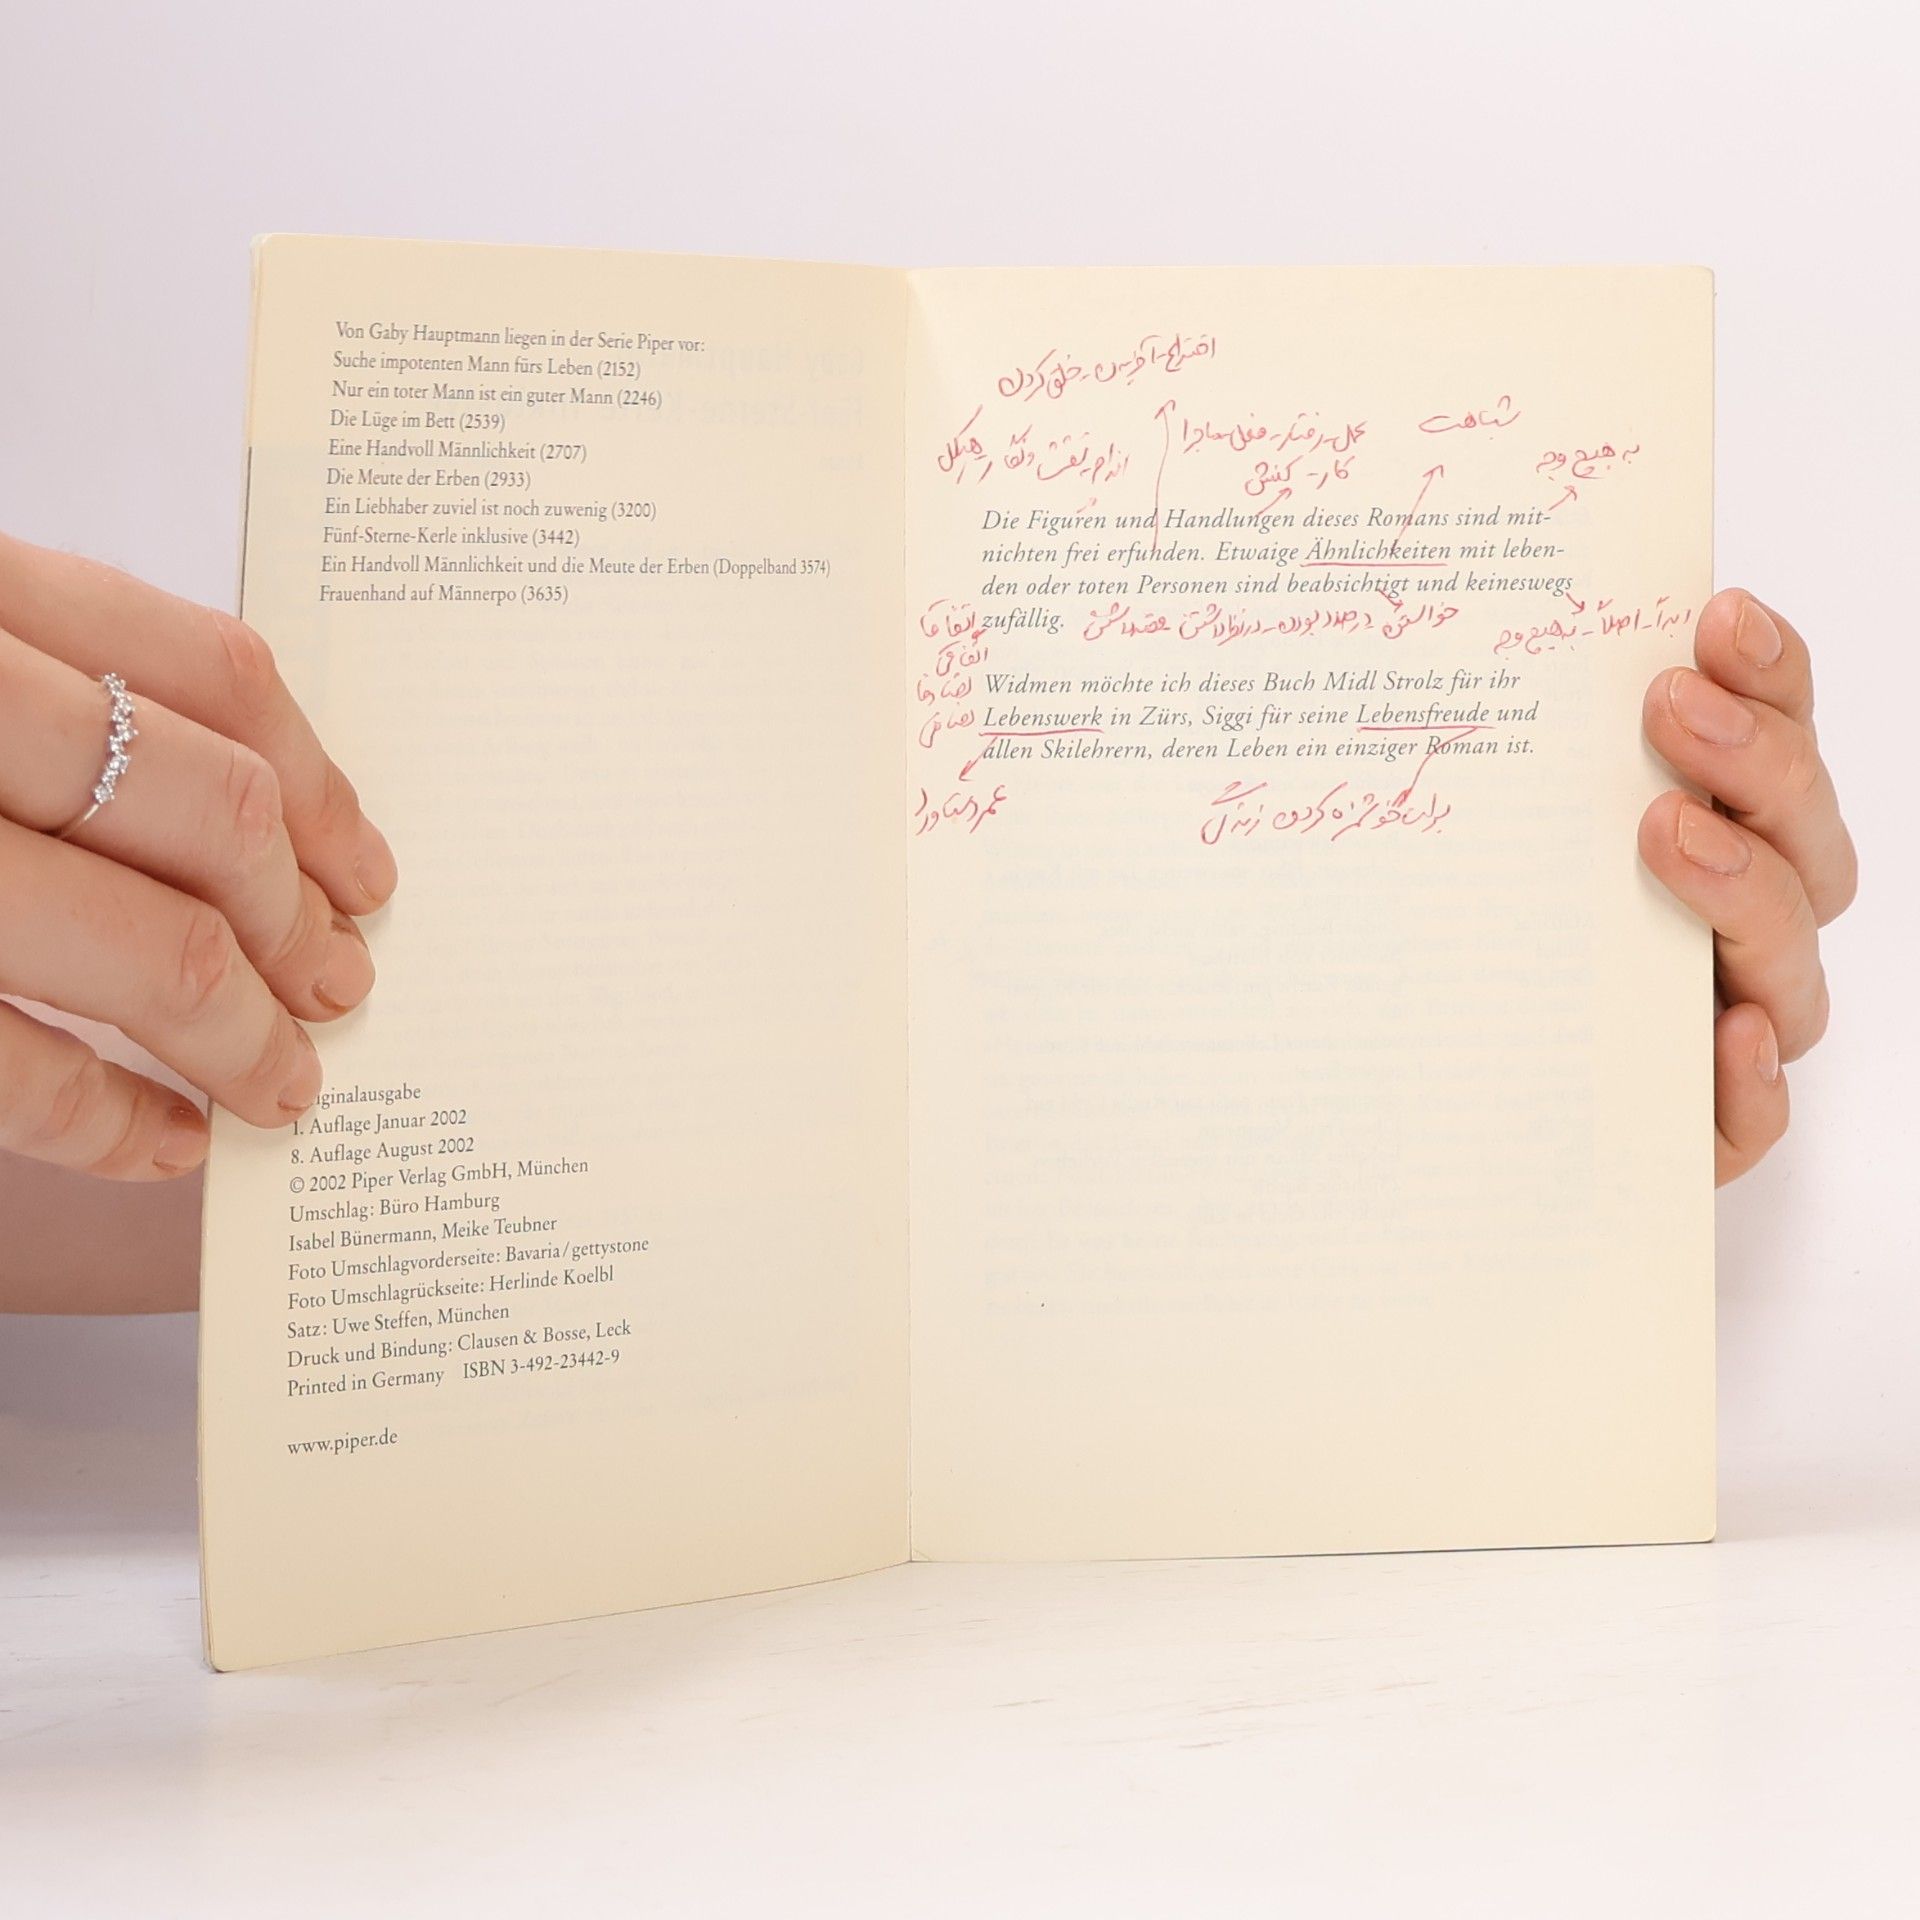 Von Gaby Hauptmann liegen in der Serie Piper vor:
Suche impotenten Mann fürs Leben (2152)
Nur ein toter Mann ist ein guter Mann (2246)
Die Lüge im Bett (2539)
Eine Handvoll Männlichkeit (2707)
Die Meute der Erben (2933)
Ein Liebhaber zuviel ist noch zuwenig (3200)
Fünf-Sterne-Kerle inklusive (3442)
Ein Handvoll Männlichkeit und die Meute der Erben (Doppelband 3574)
Frauenhand auf Männerpo (3635)
iginalausgabe
1. Auflage Januar 2002
8. Auflage August 2002
© 2002 Piper Verlag GmbH, München
Umschlag: Büro Hamburg
Isabel Bünermann, Meike Teubner
Foto Umschlagvorderseite: Bavaria/gettystone
Foto Umschlagrückseite: Herlinde Koelbl
Satz: Uwe Steffen, München
Druck und Bindung: Clausen & Bosse, Leck
Printed in Germany ISBN 3-492-23442-9
www.piper.de
اختراع - آفریدن - خلق کردن
شباهت
عمل - رفتار - فعل - ماجرا
اندام - نقش و نگار - هیکل
به هیچ وجه
کار - کنش
Die Figuren und Handlungen dieses Romans sind mit-
nichten frei erfunden. Etwaige Ähnlichkeiten mit leben-
den oder toten Personen sind beabsichtigt und keineswegs
zufällig.
خواستن - درصدد بودن - در نظر داشتن - قصد داشتن
ابداً - اصلاً - به هیچ وجه
اتفاقا
اتفاقی
تصادفا
تصادفی
Widmen möchte ich dieses Buch Midl Strolz für ihr
Lebenswerk in Zürs, Siggi für seine Lebensfreude und
allen Skilehrern, deren Leben ein einziger Roman ist.
عمر دستاورد
زندگی